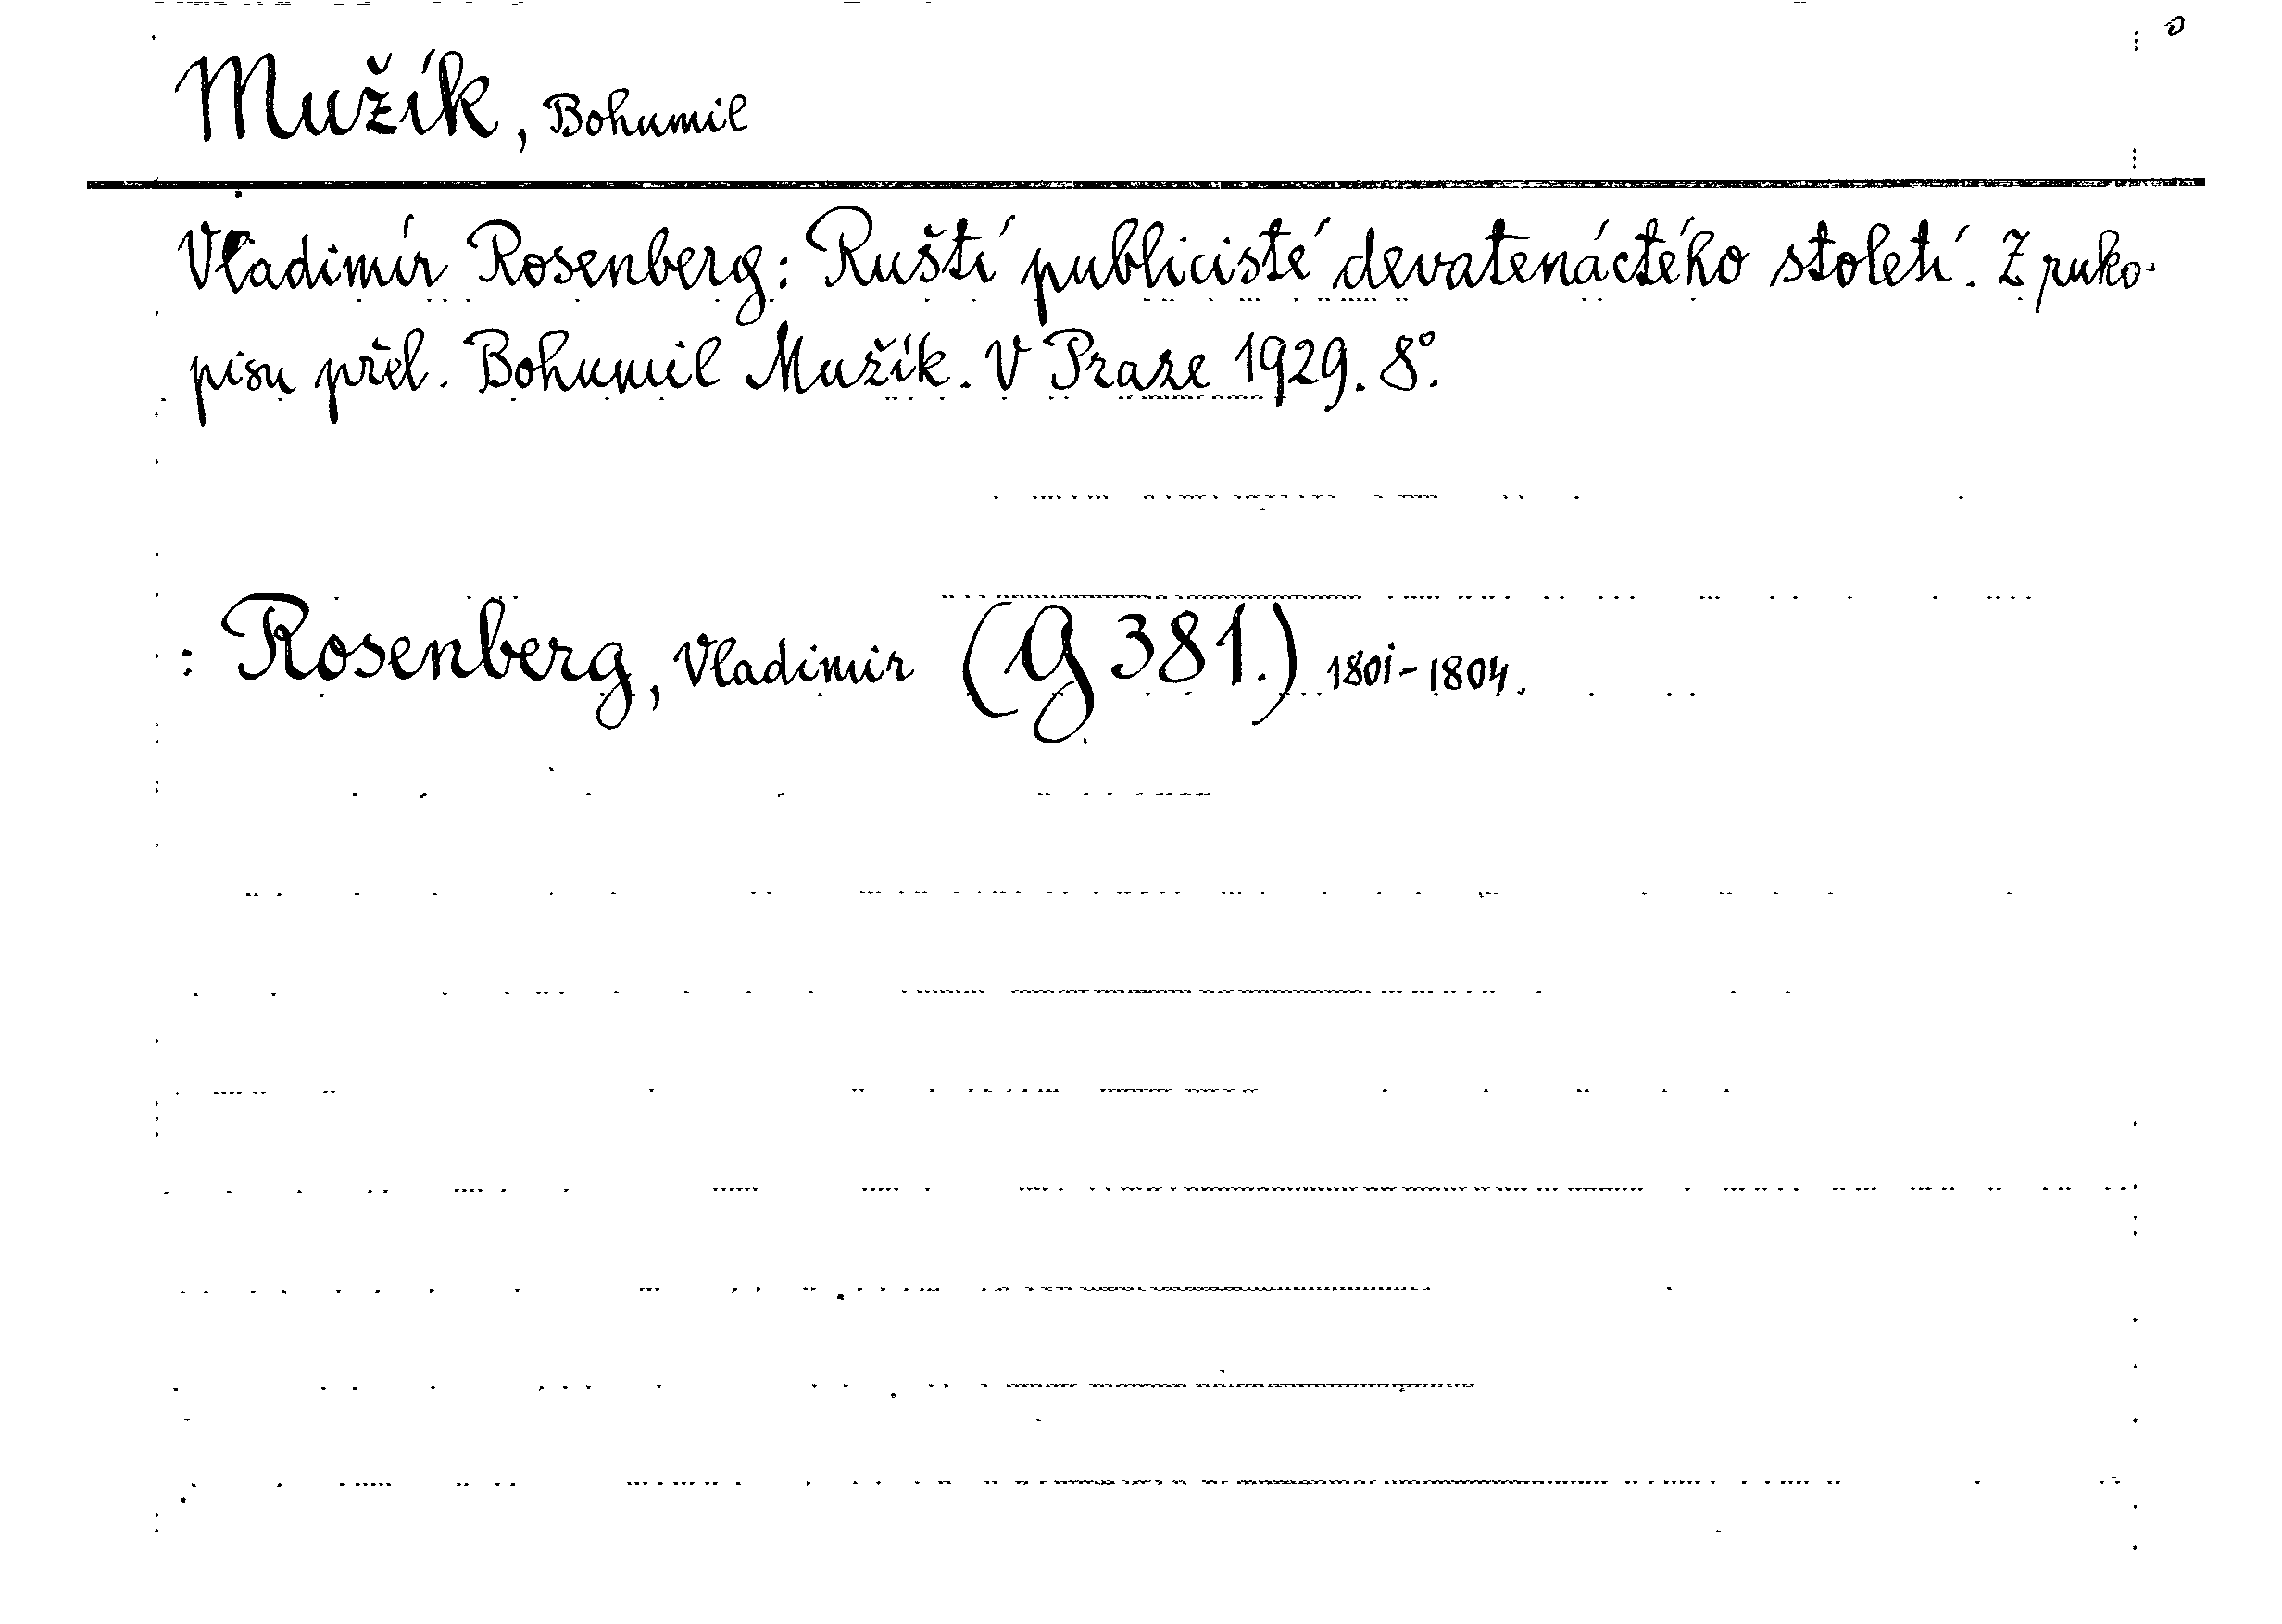 Mužík, Bohumil
Vladimír Rosenberg: Ruští publicisté devatenáctého století. Z ruko-
pisu přel. Bohumil Mužík. V Praze 1929. 8°.
: Rosenberg, Vladimír (G 381.) 1801-1804.